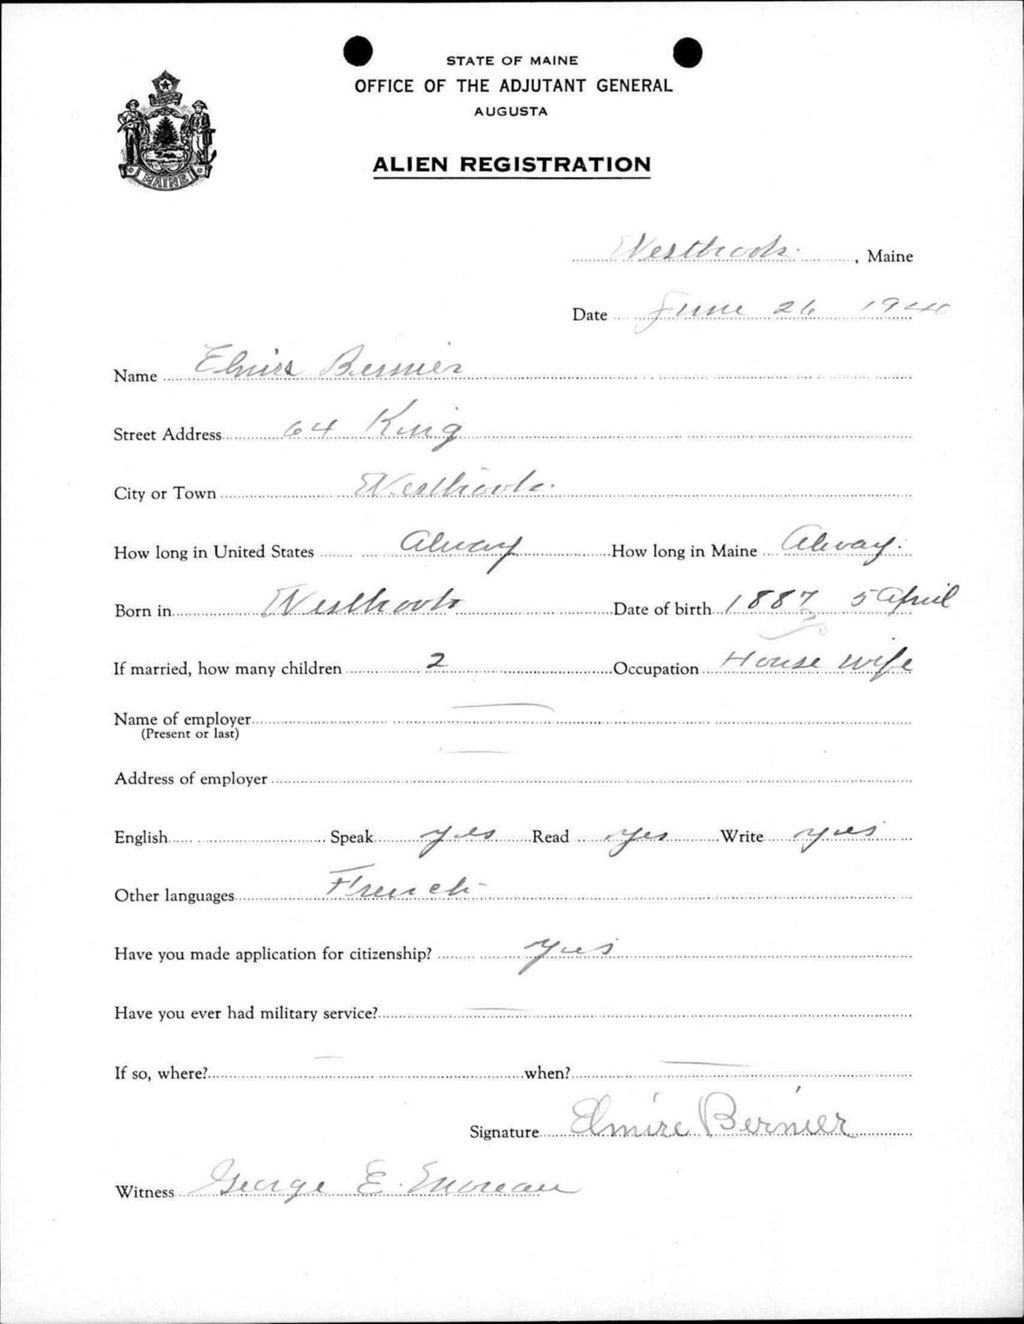 STATE OF MAINE
OFFICE OF THE ADJUTANT GENERAL
AUGUSTA
MAINE
ALIEN REGISTRATION
Westbrook, Maine
Date June 26 1940
Name Elmire Bernier
Street Address 64 King
City or Town Westbrook
How long in United States Alway How long in Maine Alway.
Born in Westbrook Date of birth 1887 5 April
If married, how many children 2 Occupation House wife
Name of employer
(Present or last)
Address of employer
English Speak yes Read yes Write yes
Other languages French
Have you made application for citizenship? yes
Have you ever had military service?
If so, where? when?
Signature Elmire Bernier
Witness George E. Moreau